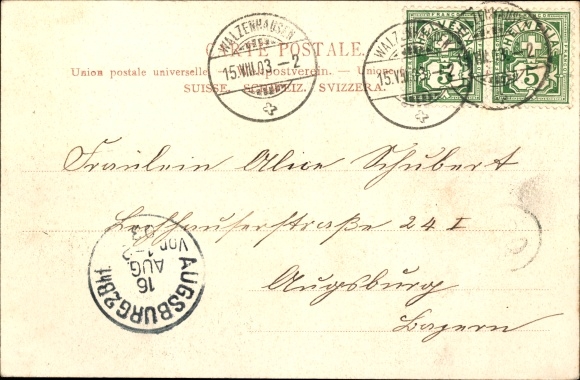 CARTE POSTALE.
Union postale universelle. — Weltpostverein. — Unione
SUISSE. SCHWEIZ. SVIZZERA.
WALZENHAUSEN
15.VIII.03.–2
WALZENHAUSEN
15.VIII.03.–2
HELVETIA
5
HELVETIA
5
Fräulein Alice Schubert
24 I
Augsburg
Bayern
AUGSBURG 2.B.14.
16
AUG
Vor.1-2
03